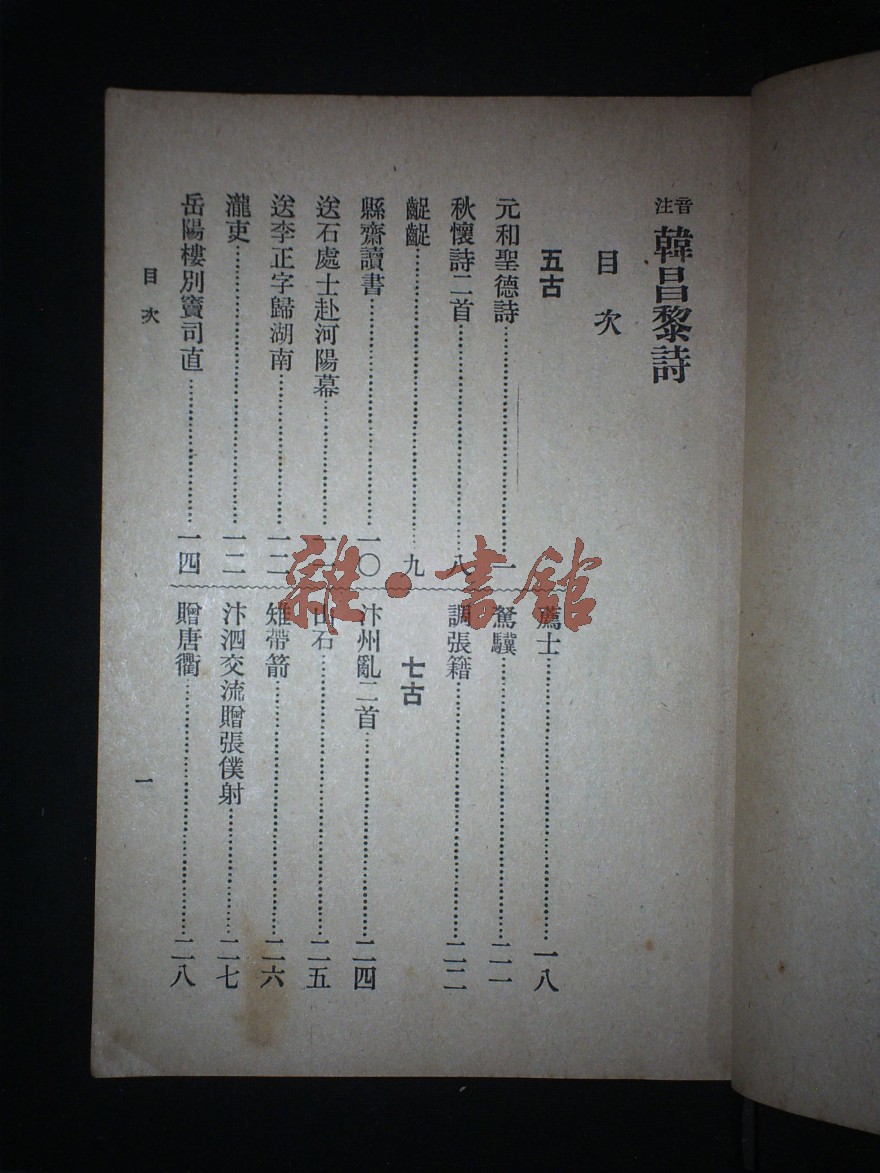 音注 韓昌黎詩
目次
五古
元和聖德詩……一
秋懷詩二首……八
齪齪……九
縣齋讀書……一〇
送石處士赴河陽幕……一一
送李正字歸湖南……一二
瀧吏……一二
岳陽樓別竇司直……一四
薦士……一八
駑驥……二一
調張籍……二二
七古
汴州亂二首……二四
山石……二五
雉帶箭……二六
汴泗交流贈張僕射……二七
贈唐衢……二八
目次
一
雜·書館